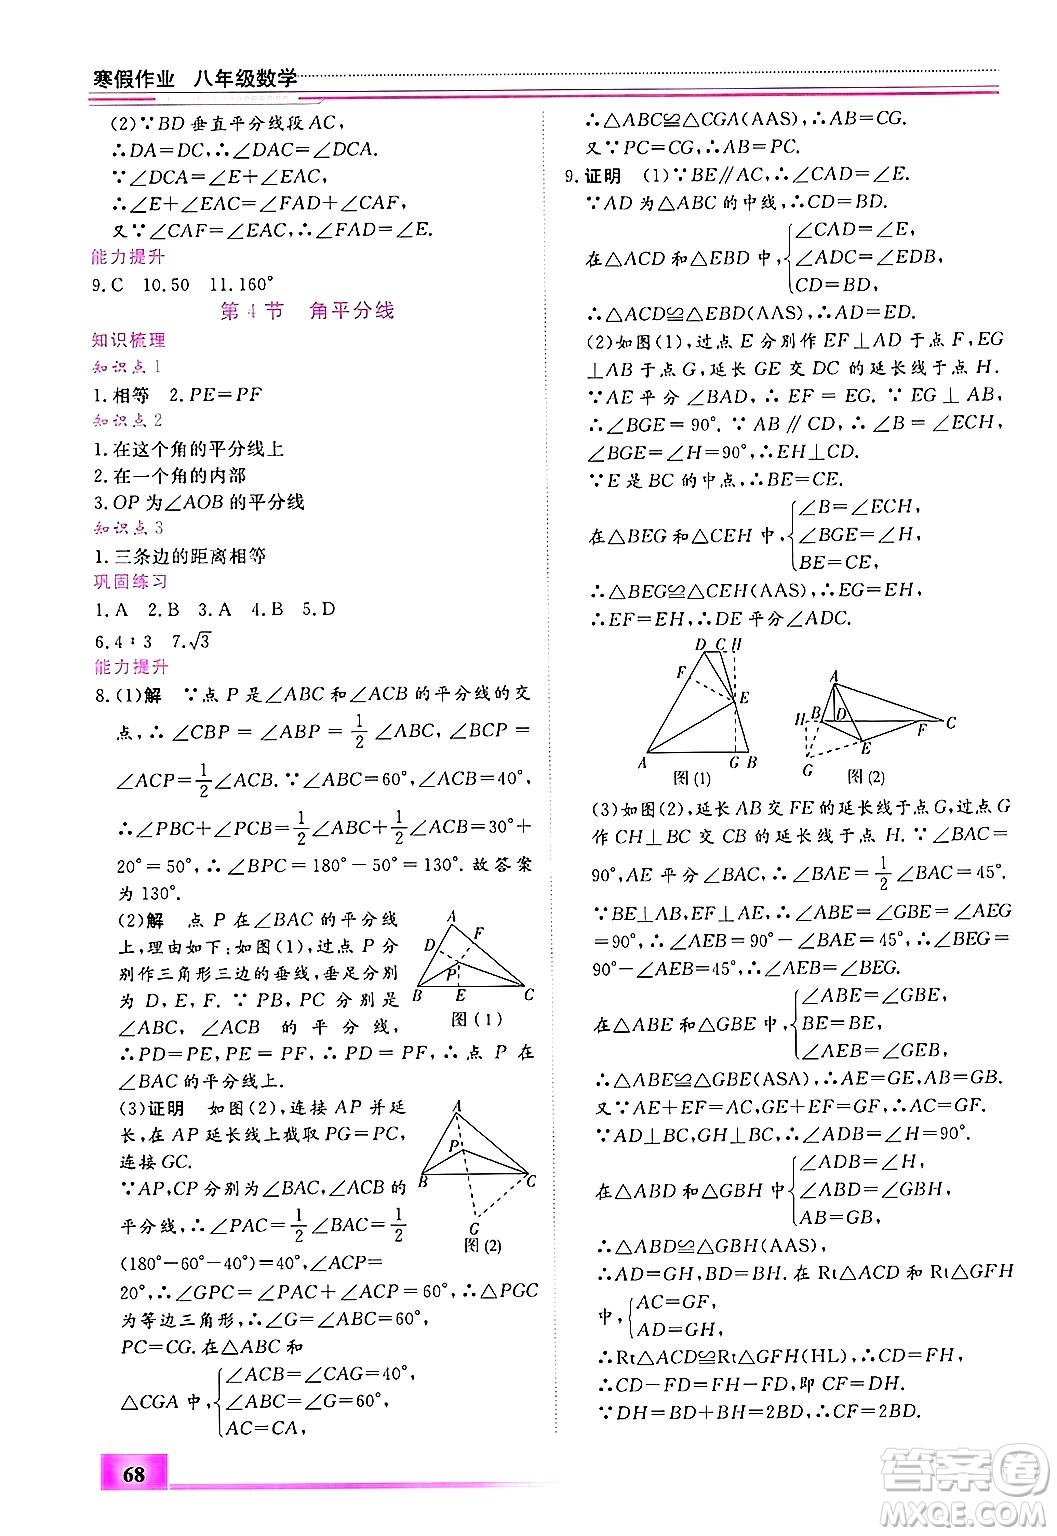 寒假作业 八年级数学
(2)∵BD垂直平分线段AC,
∴DA=DC,∴∠DAC=∠DCA.
∵∠DCA=∠E+∠EAC,
∴∠E+∠EAC=∠FAD+∠CAF.
又∵∠CAF=∠EAC,∴∠FAD=∠E.
能力提升
9.C 10.50 11.160°
第4节 角平分线
知识梳理
知识点1
1.相等 2.PE=PF
知识点2
1.在这个角的平分线上
2.在一个角的内部
3.OP为∠AOB的平分线
知识点3
1.三条边的距离相等
巩固练习
1.A 2.B 3.C 4.B 5.D
6.4∶3 7.√3
能力提升
8.(1)解 ∵点P是∠ABC和∠ACB的平分线的交
点,∴∠CBP=∠ABP=1/2∠ABC,∠BCP=
∠ACP=1/2∠ACB.∵∠ABC=60°,∠ACB=40°,
∴∠PBC+∠PCB=1/2∠ABC+1/2∠ACB=30°+
20°=50°,∴∠BPC=180°-50°=130°.故答案
为130°.
(2)解 点P在∠BAC的平分线
上,理由如下:如图(1),过点P分
别作三角形三边的垂线,垂足分别
为D,E,F.∵PB,PC分别是
∠ABC,∠ACB的平分线,
∴PD=PE,PE=PF,∴PD=PF,∴点P在
∠BAC的平分线上.
A
D F
P
B E C
图(1)
(3)证明 如图(2),连接AP并延
长,在AP延长线上截取PG=PC,
连接GC.
∵AP,CP分别为∠BAC,∠ACB的
平分线,∴∠PAC=1/2∠BAC=1/2
(180°-60°-40°)=40°,∠ACP=
20°,∴∠GPC=∠PAC+∠ACP=60°,∴△PGC
为等边三角形,∴∠G=∠ABC=60°,
PC=CG.在△ABC和
△CGA中,{∠ACB=∠CAG=40°,
∠ABC=∠G=60°,
AC=CA,
A
P
B C
G
图(2)
∴△ABC≌△CGA(AAS),∴AB=CG.
又∵PC=CG,∴AB=PC.
9.证明 (1)∵BE∥AC,∴∠CAD=∠E.
∵AD为△ABC的中线,∴CD=BD.
在△ADC和△EBD中,{∠CAD=∠E,
∠ADC=∠BDE,
CD=BD,
∴△ADC≌△EBD(AAS),∴AD=ED.
(2)如图(1),过点E分别作EF⊥AD于点F,EG
⊥AB于点G,延长GE交DC的延长线于点H.
∵AE平分∠BAD,∴EF=EG.∵EG⊥AB,
∴∠BGE=90°.∵AB∥CD,∴∠B=∠ECH,
∠BGE=∠H=90°,∴EH⊥CD.
∵E是BC的中点,∴BE=CE.
在△BEG和△CEH中,{∠B=∠ECH,
∠BGE=∠H,
BE=CE,
∴△BEG≌△CEH(AAS),∴EG=EH,
∴EF=EH,∴DE平分∠ADC.
D C H
F
E
A G B
图(1)
A
H B D F C
E
G
图(2)
(3)如图(2),延长AB交FE的延长线于点G,过点G
作CH⊥BC交CB的延长线于点H.∵∠BAC=
90°,AE平分∠BAC,∴∠BAE=1/2∠BAC=45°.
∵BE⊥AE,EF⊥AE,∴∠ABE=∠GBE=∠AEG
=90°,∴∠AEB=90°-∠BAE=45°,∴∠BEG=
90°-∠AEB=45°,∴∠AEB=∠BEG.
在△ABE和△GBE中,{∠ABE=∠GBE,
BE=BE,
∠AEB=∠GEB,
∴△ABE≌△GBE(ASA),∴AE=GE,AB=GB.
又∵AE+EF=GE+EF=GF,∴AC=GF.
∵AD⊥BC,GH⊥BC,∴∠ADB=∠H=90°.
在△ABD和△GBH中{∠ADB=∠H,
∠ABD=∠GBH,
AB=GB,
∴△ABD≌△GBH(AAS),
∴AD=GH,BD=BH.在Rt△ACD和Rt△GFH
中,{AC=GF,
AD=GH,
∴Rt△ACD≌Rt△GFH(HL),∴CD=FH,
∴CD-FD=FH-FD,即CF=DH.
∵DH=BD+BH=2BD,∴CF=2BD.
68
答案圈
MXQE.COM